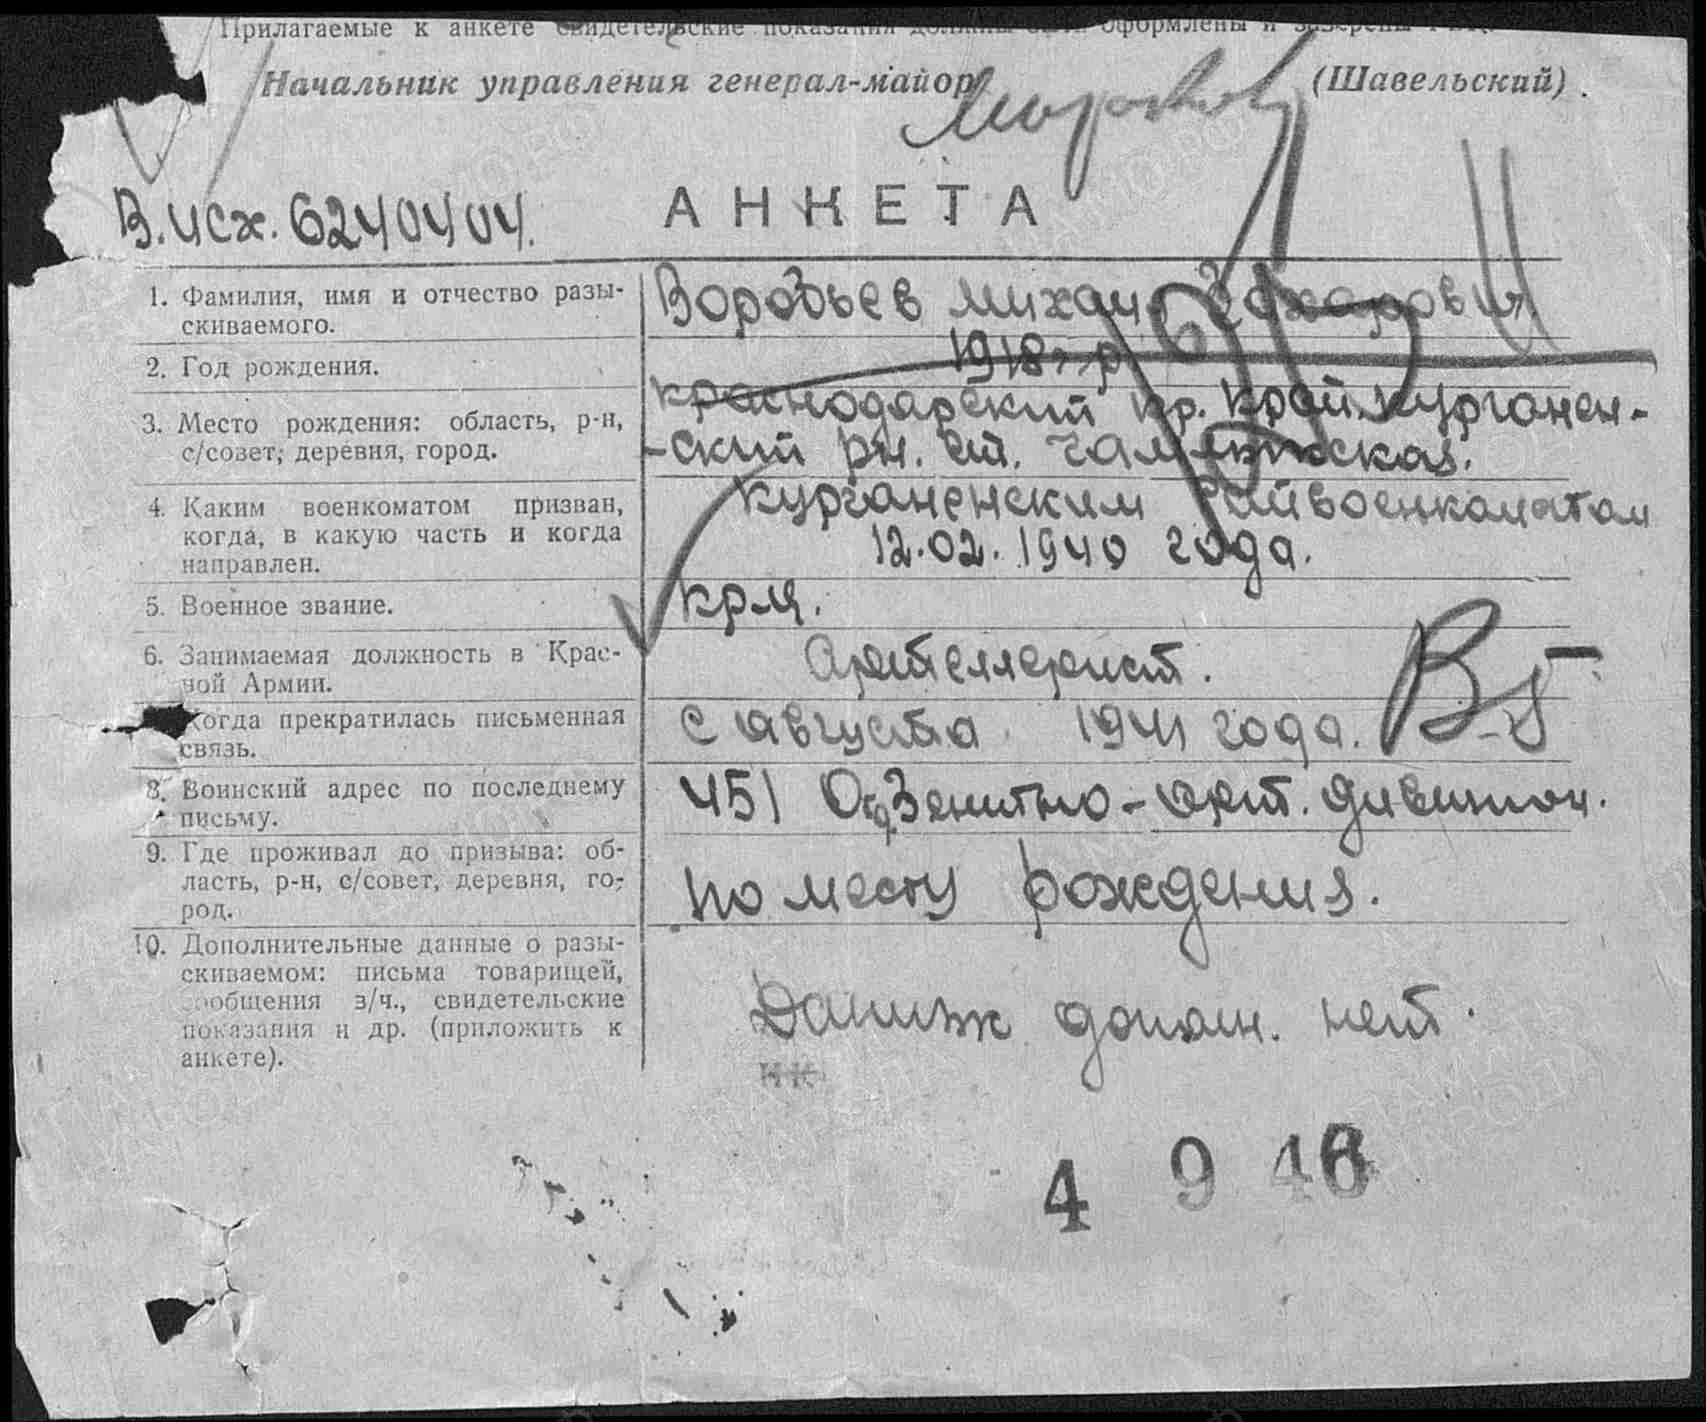 Прилагаемые к анкете свидетельские показания должны быть оформлены и заверены
Начальник управления генерал-майор (Шавельский).
В.исх. 6240404.
АНКЕТА
1. Фамилия, имя и отчество разы-
скиваемого.
Воробьев Михаил Захарович
2. Год рождения.
1918 г.р.
3. Место рождения: область, р-н,
с/совет, деревня, город.
Краснодарский кр. край. Курганен-
-ский рн. ст. Чамлыкская.
4. Каким военкоматом призван,
когда, в какую часть и когда
направлен.
Курганенским Райвоенкоматом
12.02.1940 года.
5. Военное звание.
кр-ц.
6. Занимаемая должность в Крас-
ной Армии.
Артеллерист.
Когда прекратилась письменная
связь.
с августа 1941 года.
8. Воинский адрес по последнему
письму.
451 Отд Зенитно-арт. дивизион.
9. Где проживал до призыва: об-
ласть, р-н, с/совет, деревня, го-
род.
по месту рождения.
10. Дополнительные данные о разы-
скиваемом: письма товарищей,
сообщения з/ч., свидетельские
показания и др. (приложить к
анкете).
Данных дополн. нет.
4 9 46